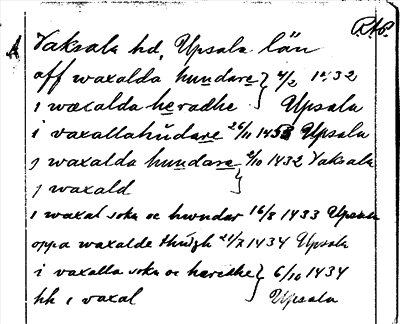 RAP.
Vaksala hd, Upsala län
aff waxalda hundare } 4/2 1432
i wæxalda heradhe } Upsala
i vaxallahūdare 26/11 1453 Upsala
j waxalda hundare } 9/10 1432 Vaksala
j waxald }
i waxal sokn oc hwndar 16/3 1433 Upsala
oppa waxalde thingh 21/7 1434 Upsala
i vaxalla sokn oc hæredhe } 6/10 1434
hk i vaxal } Upsala